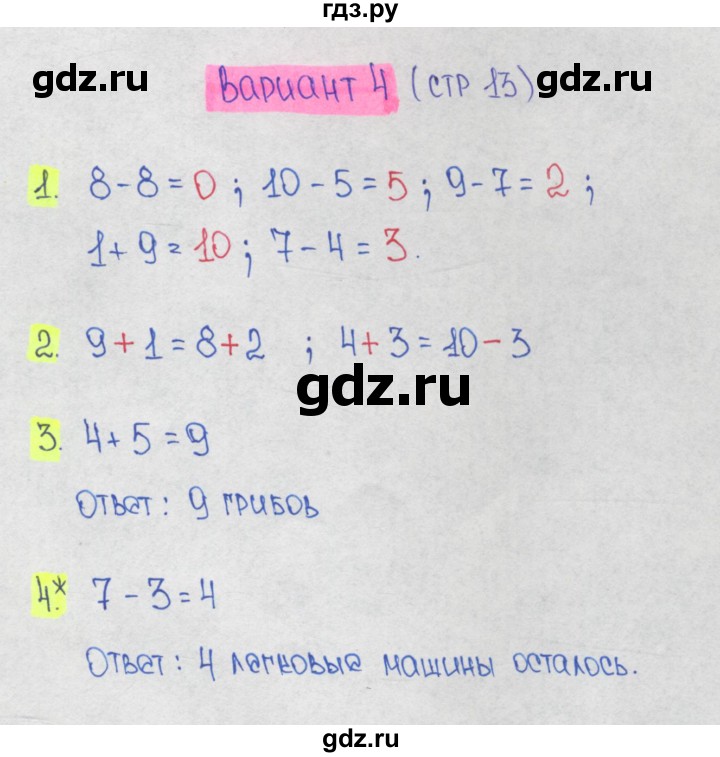 гдз.ру
gdz.ru вариант 4 (стр 13) gdz.ru
1. 8-8=0; 10-5=5; 9-7=2;
1+9=10; 7-4=3.
2. 9+1=8+2 ; 4+3=10-3
gdz.ru
3. 4+5=9
Ответ: 9 грибов
4.* 7-3=4
Ответ: 4 легковые машины осталось.
gdz.ru